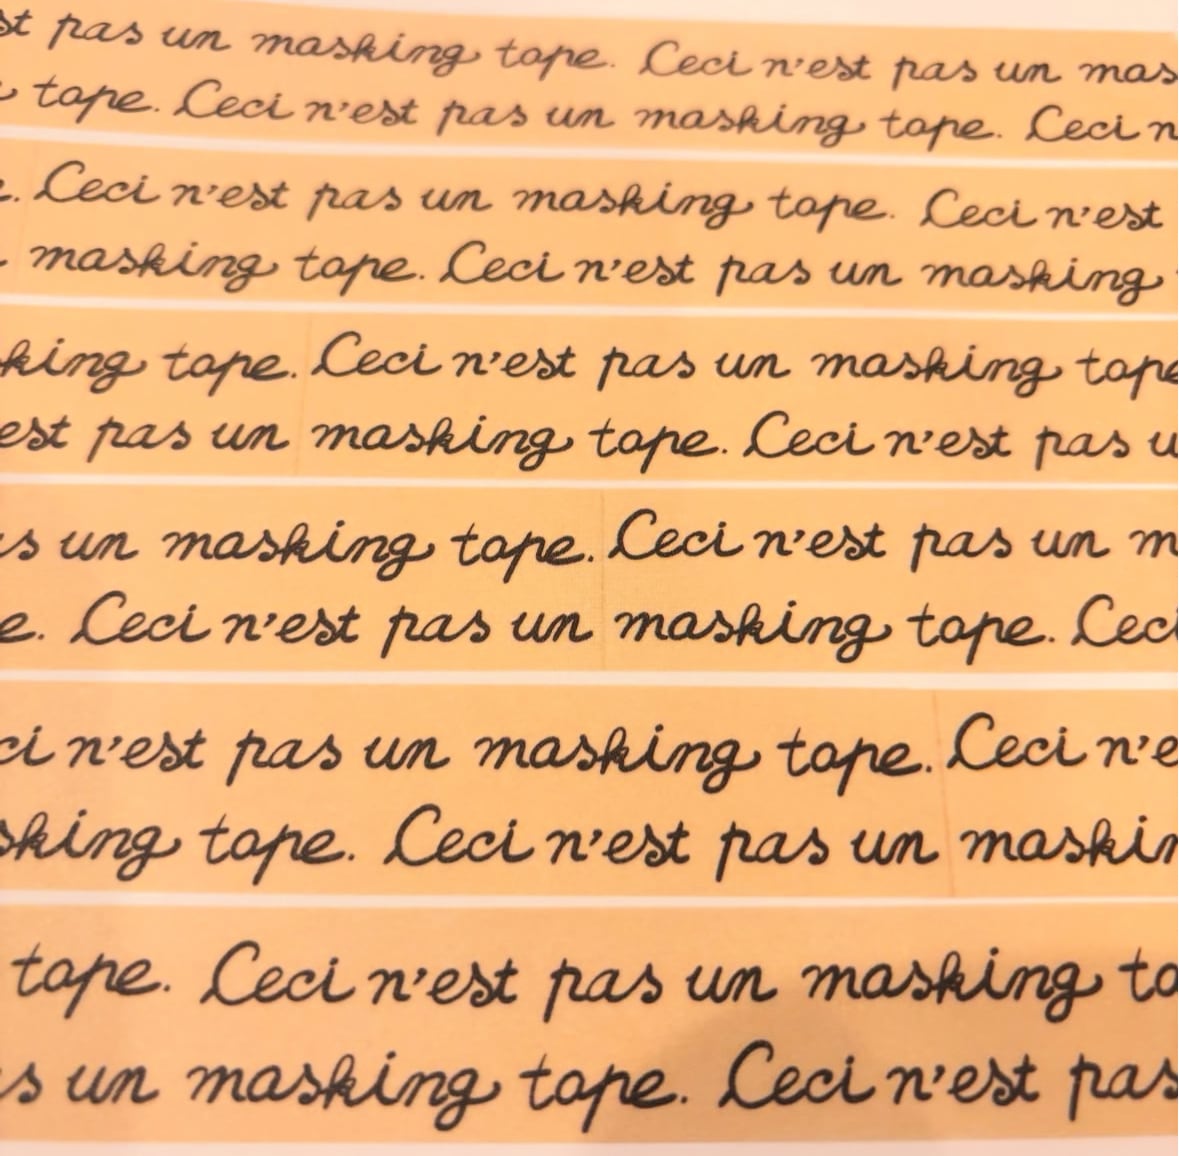 st pas un masking tape. Ceci n'est pas un mas
tape. Ceci n'est pas un masking tape. Ceci n
e. Ceci n'est pas un masking tape. Ceci n'est
masking tape. Ceci n'est pas un masking
king tape. Ceci n'est pas un masking tape
est pas un masking tape. Ceci n'est pas u
s un masking tape. Ceci n'est pas un m
e. Ceci n'est pas un masking tape. Ceci
ci n'est pas un masking tape. Ceci n'e
sking tape. Ceci n'est pas un maskin
tape. Ceci n'est pas un masking ta
s un masking tape. Ceci n'est pas